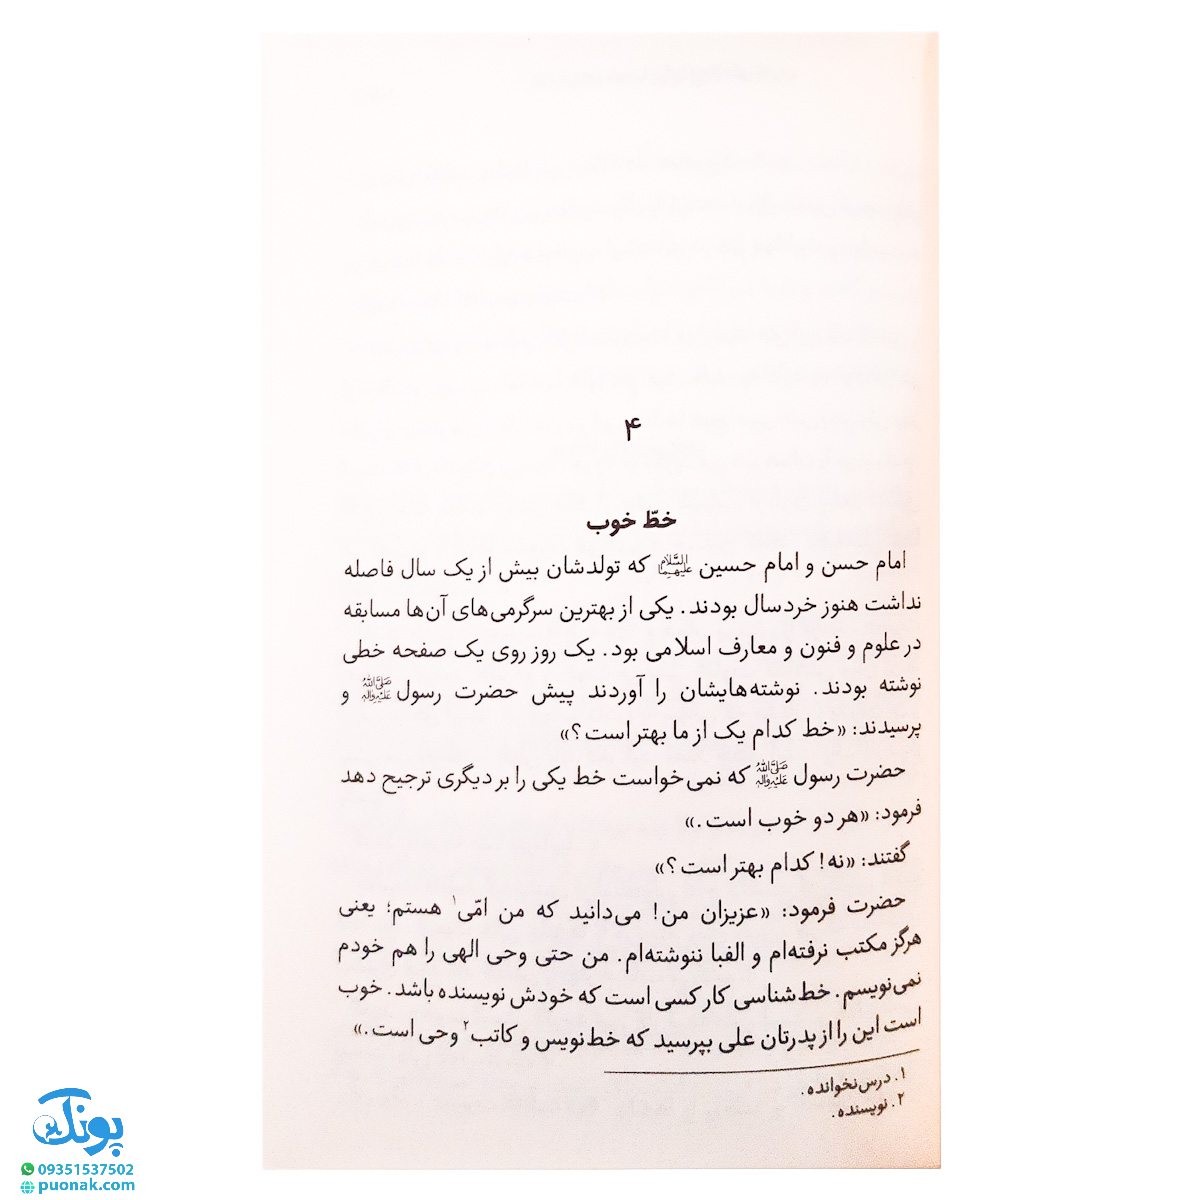 ۴
خطّ خوب
امام حسن و امام حسین علیهما السّلام که تولدشان بیش از یک سال فاصله
نداشت هنوز خردسال بودند. یکی از بهترین سرگرمی‌های آن‌ها مسابقه
در علوم و فنون و معارف اسلامی بود. یک روز روی یک صفحه خطی
نوشته بودند. نوشته‌هایشان را آوردند پیش حضرت رسول صلّی الله علیه وآله و
پرسیدند: «خط کدام یک از ما بهتر است؟»
حضرت رسول صلّی الله علیه وآله که نمی‌خواست خط یکی را بر دیگری ترجیح دهد
فرمود: «هر دو خوب است.»
گفتند: «نه! کدام بهتر است؟»
حضرت فرمود: «عزیزان من! می‌دانید که من امّی۱ هستم؛ یعنی
هرگز مکتب نرفته‌ام و الفبا ننوشته‌ام. من حتی وحی الهی را هم خودم
نمی‌نویسم. خط‌شناسی کار کسی است که خودش نویسنده باشد. خوب
است این را از پدرتان علی بپرسید که خط‌نویس و کاتب۲ وحی است.»
۱. درس‌نخوانده.
۲. نویسنده.
پونک
09351537502
puonak.com